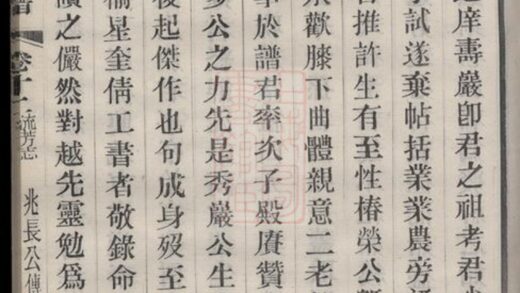 庠壽嚴卽君之祖考君
試遂棄帖括業業農旁
推許生有至性椿榮公
歡膝下曲體親意二老
於譜君率次子殿賡贊
公之力先是秀嚴公生
後起傑作也句成身歿至
星奎倩工書者敬錄命
之儼然對越先靈勉爲
譜 卷十二 流芳志 兆長公傳